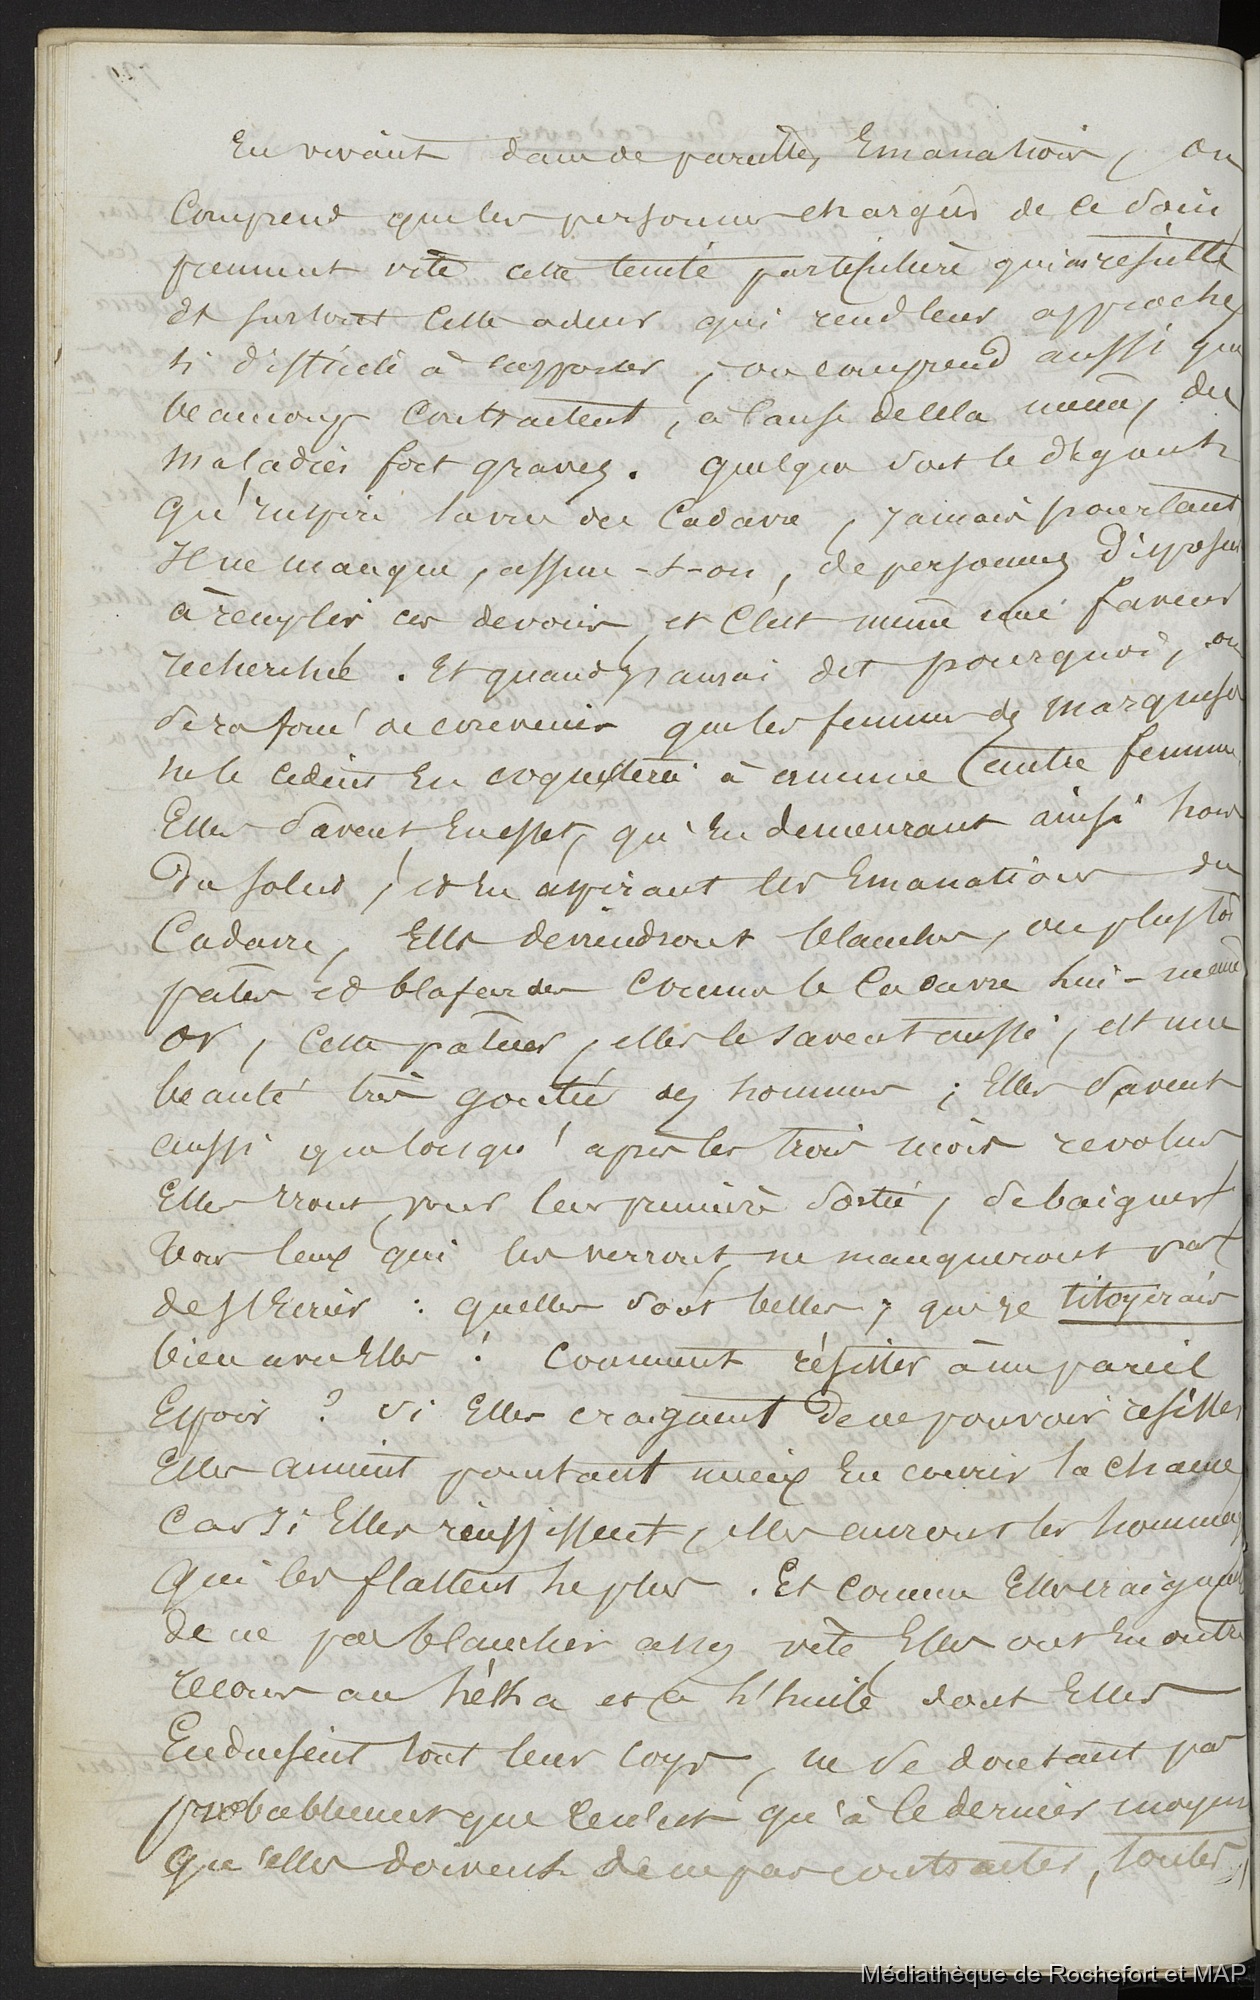 En vivant dans de pareilles Emanations, on
Comprend que les personnes chargées de ce soin
prennent vite cette teinte particulière qui en résulte
et surtout cette odeur qui rend leur approche
si difficile à supporter, on comprend aussi que
beaucoup contractent, à cause de cela même, des
maladies fort graves. quelque soit le dégout
qu'inspire la vue du Cadavre, jamais pourtant
Il ne manque, assure-t-on, de personnes disposées
à remplir ces devoirs, et c'est même une faveur
recherchée. Et quand j'aurai dit pourquoi, on
sera forcé de convenir que les femmes des marquises
ne le cèdent en coquetterie à aucune autre femme.
Elles savent en effet, qu'en demeurant ainsi hors
du soleil, et en aspirant les Emanations du
Cadavre, Elles deviendront blanches, ou plustôt
pâles et blafardes comme le Cadavre lui-même
or, cette pâleur, elles le savent aussi, est une
beauté très goutée des hommes ; Elles savent
aussi que lorsqu'après les trois mois revolus
Elles iront, pour leur première sortie, se baigner
tous ceux qui les verront, ne manqueront pas
de s'Ecrier : quelles sont belles, que je titoyerais
bien avec Elles ! Comment résister à un pareil
Espoir ? si Elles craignent de ne pouvoir résister
Elles aiment pourtant mieux en courir la chance
Car si Elles réussissent, elles auront les hommages
qui les flattent le plus. Et comme Elles craignent
de ne pas blanchir assez vite, Elles ont en outre
recours au héka et à l'huile dont Elles
Enduisent tout leur corps, ne se doutant pas
probablement que ce n'est qu'à ce dernier moyen
qu'elles doivent de ne pas contracter, toutes,
Médiathèque de Rochefort et MAP